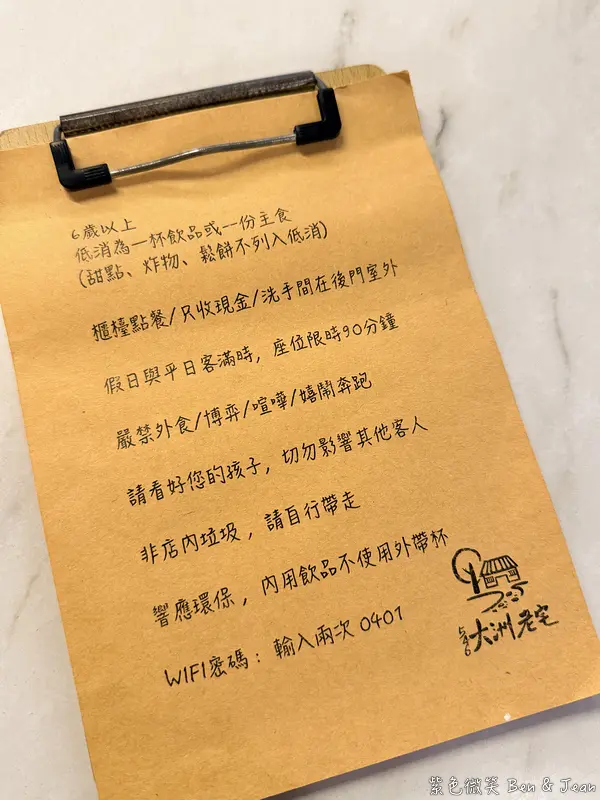 6歲以上
低消為一杯飲品或一份主食
(甜點、炸物、鬆餅不列入低消)
櫃檯點餐/只收現金/洗手間在後門室外
假日與平日客滿時，座位限時90分鐘
嚴禁外食/博弈/喧嘩/嬉鬧奔跑
請看好您的孩子，切勿影響其他客人
非店內垃圾，請自行帶走
響應環保，內用飲品不使用外帶杯
WIFI密碼：輸入兩次 0401
大洲老宅
紫色微笑 Ben & Jean